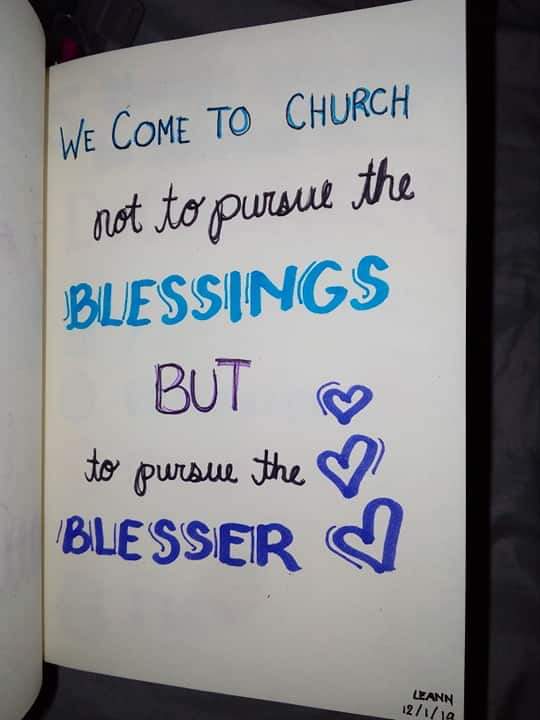 WE COME TO CHURCH
not to pursue the
BLESSINGS
BUT
to pursue the
BLESSER
LEANN
12/1/19